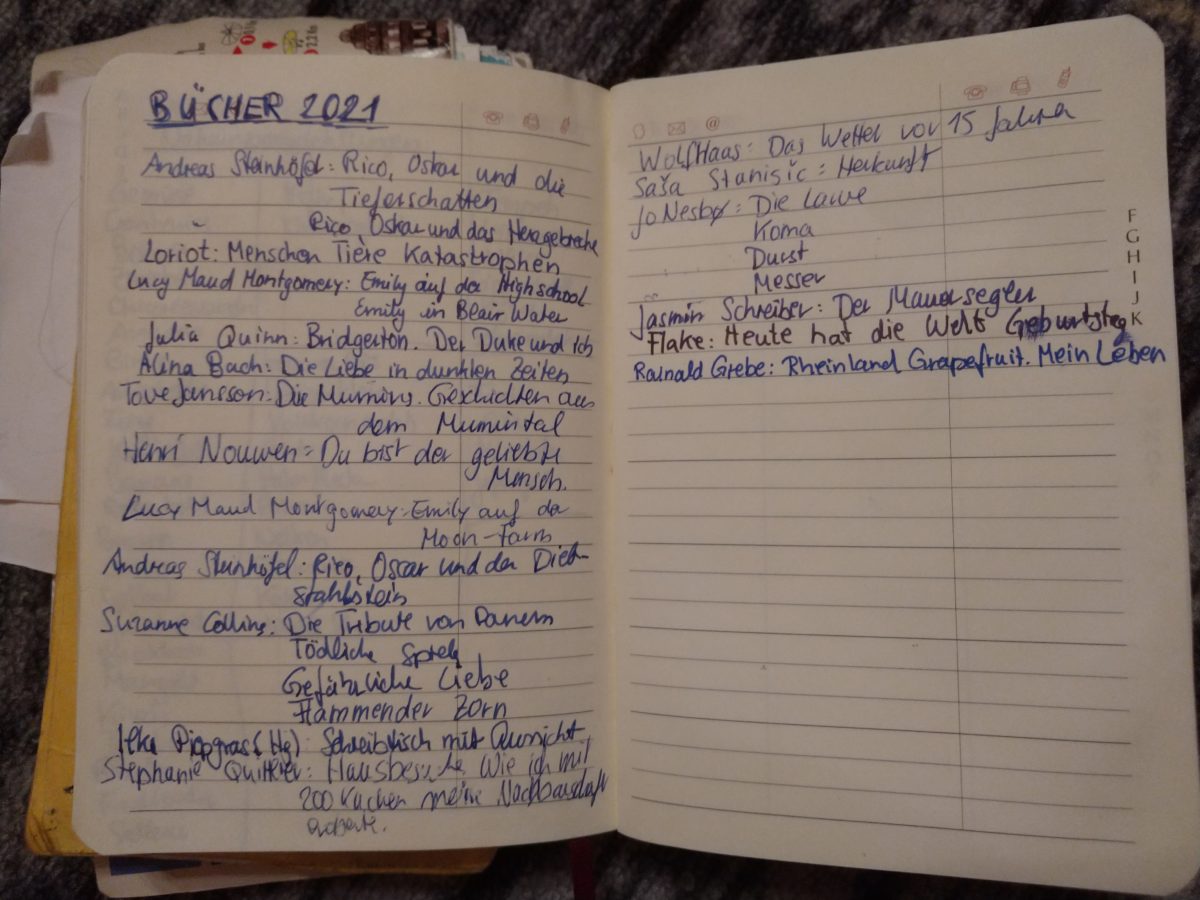 BÜCHER 2021
Andreas Steinhöfel: Rico, Oskar und die
Tieferschatten
Rico, Oskar und das Herzgebreche
Loriot: Menschen Tiere Katastrophen
Lucy Maud Montgomery: Emily auf der Highschool
Emily in Blair Water
Julia Quinn: Bridgerton. Der Duke und ich
Alina Bach: Die Liebe in dunklen Zeiten
Tove Jansson: Die Mumins. Geschichten aus
dem Mumintal
Henri Nouwen: Du bist der geliebte
Mensch.
Lucy Maud Montgomery: Emily auf der
Moon-Farm
Andreas Steinhöfel: Rico, Oscar und der Dieb-
stahlstein
Suzanne Collins: Die Tribute von Panem
Tödliche Spiele
Gefährliche Liebe
Flammender Zorn
Ilka Piepgras (Hg): Schreibtisch mit Aussicht
Stephanie Quitterer: Hausbesuche Wie ich mit
200 Kuchen meine Nachbarschaft
eroberte.
Wolf Haas: Das Wetter vor 15 Jahren
Saša Stanišić: Herkunft
Jo Nesbø: Die Larve
Koma
Durst
Messer
Jasmin Schreiber: Der Mauersegler
Flake: Heute hat die Welt Geburtstag
Rainald Grebe: Rheinland Grapefruit. Mein Leben
F
G
H
I
J
K